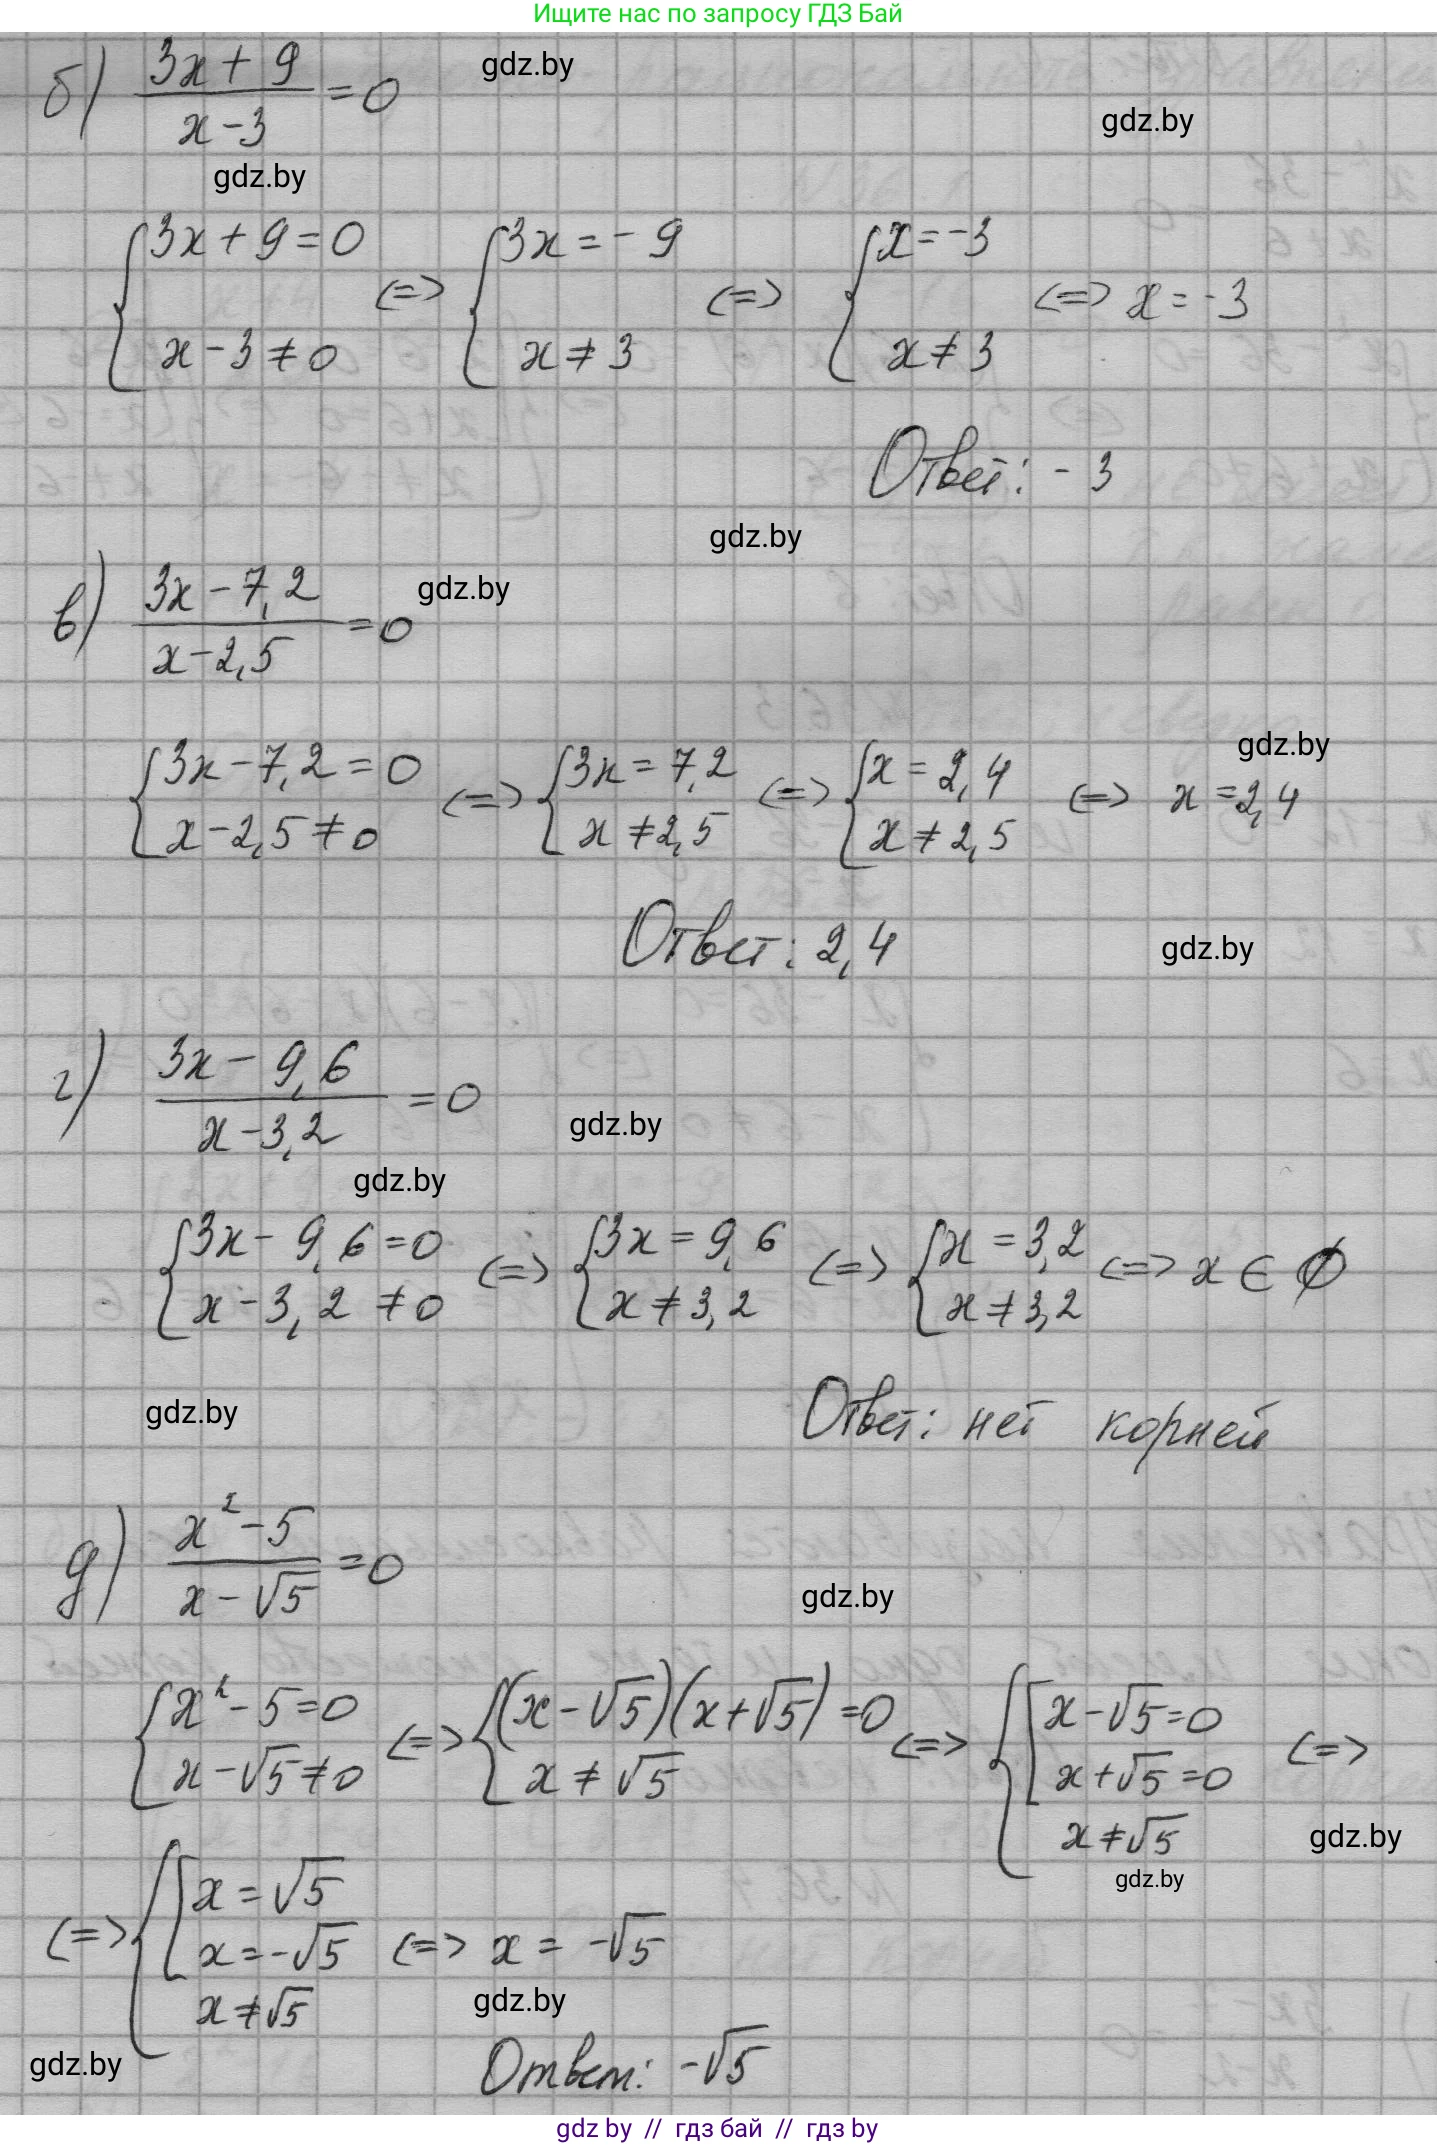 Ищите нас по запросу ГДЗ Бай
б) (3x + 9)/(x - 3) = 0
gdz.by
gdz.by
gdz.by
{3x + 9 = 0 <=> {3x = -9 <=> {x = -3 <=> x = -3
x - 3 ≠ 0 x ≠ 3 x ≠ 3
Ответ: -3
gdz.by
в) (3x - 7,2)/(x - 2,5) = 0
gdz.by
gdz.by
{3x - 7,2 = 0 <=> {3x = 7,2 <=> {x = 2,4 <=> x = 2,4
x - 2,5 ≠ 0 x ≠ 2,5 x ≠ 2,5
Ответ: 2,4
gdz.by
г) (3x - 9,6)/(x - 3,2) = 0
gdz.by
gdz.by
{3x - 9,6 = 0 <=> {3x = 9,6 <=> {x = 3,2 <=> x ∈ Ø
x - 3,2 ≠ 0 x ≠ 3,2 x ≠ 3,2
gdz.by
Ответ: нет корней
д) (x² - 5)/(x - √5) = 0
gdz.by
{x² - 5 = 0 <=> {(x - √5)(x + √5) = 0 <=> {[x - √5 = 0 <=>
x - √5 ≠ 0 x ≠ √5 x + √5 = 0
x ≠ √5
gdz.by
gdz.by
<=> {[x = √5
x = -√5 <=> x = -√5
x ≠ √5
gdz.by
gdz.by
Ответ: -√5
gdz by // гдз бай // гдз by